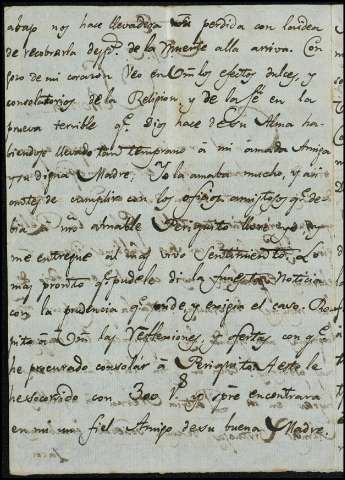 abajo nos hace llevadera una perdida con la idea
de recobrarla desps. de la muerte alla arriva. Con
gozo de mi corazon veo en Vm los efectos dulces, y
consolatorios de la Religion, y de la fé en la
prueva terrible qe. Dios hace de su Alma ha-
biendose llevado tan temprano à mi amada Amiga
y su digna Madre. Yo la amaba mucho, y asi
antes de cumplir con los oficios amistosos qe. de-
bia à mi amable Periquito
me entregue al mas vivo sentimiento. Lo
mas pronto qe. pude le di la funesta Noticia
con la prudencia qe. pude y exigia el caso. Re-
pito à Vm las reflexiones y ofertas con qe.
he procurado consolar à Periquito. A este le
he socorrido con 300 rs. y spre. encontrara
en mi un fiel Amigo de su buena Madre.